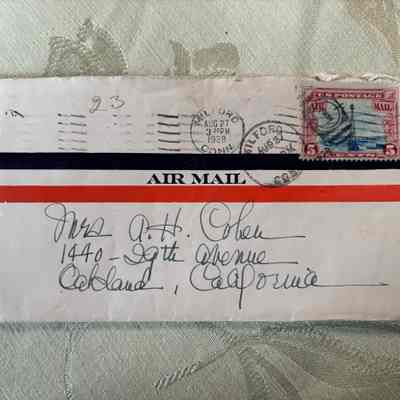 23
MILFORD
AUG 27
3 PM
1928
CONN.
MILFORD
AUG 27
U.S. POSTAGE
AIR MAIL
5 CENTS 5
AIR MAIL
Mrs A. H. Cohen
1440 - 29th Avenue
Oakland, California